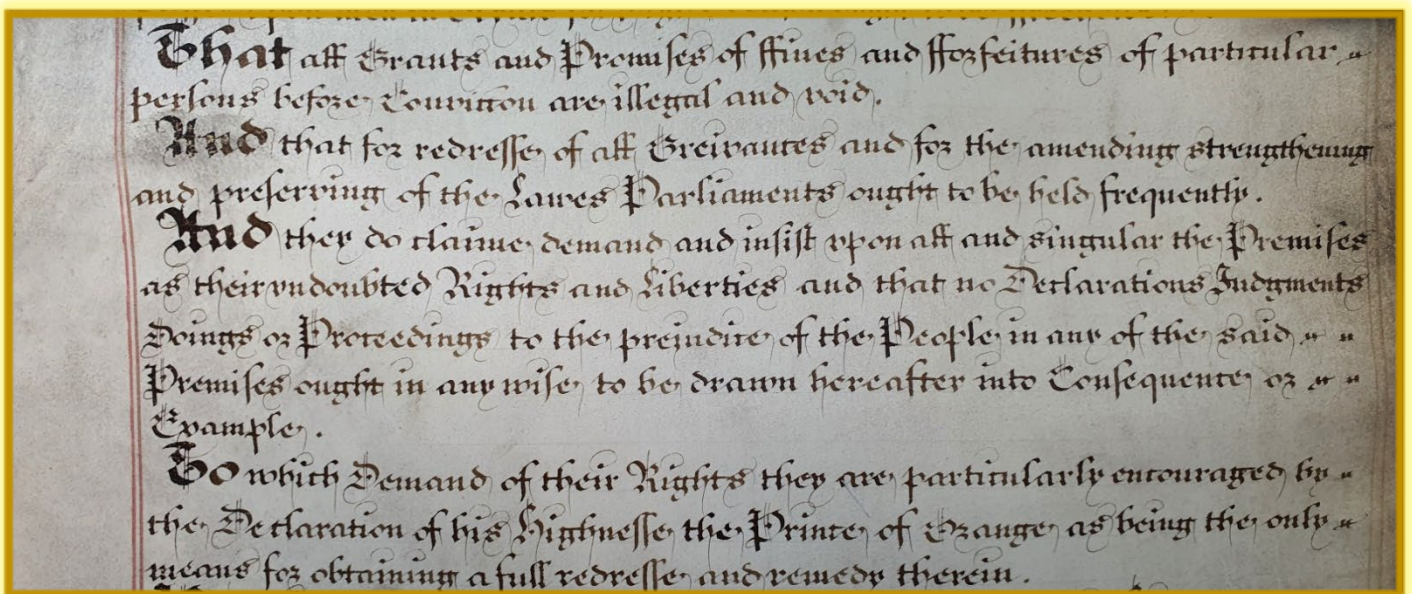 That all Grants and Promises of ffines and fforfeitures of particular
persons before Conviccon are illegal and void.
And that for redresse of all Greivances and for the amending strengthening
and preserving of the Lawes Parliaments ought to be held frequently.
And they do claime demand and insist vpon all and singular the Premises
as their vndoubted Rights and Liberties and that no Declarations Judgments
Doings or Proceedings to the prejudice of the People in any of the said
Premises ought in any wise to be drawn hereafter into Consequence or
Example.
To which Demand of their Rights they are particularly encouraged by
the Declaration of his Highnesse the Prince of Orange as being the only
means for obtaining a full redresse and remedy therein.